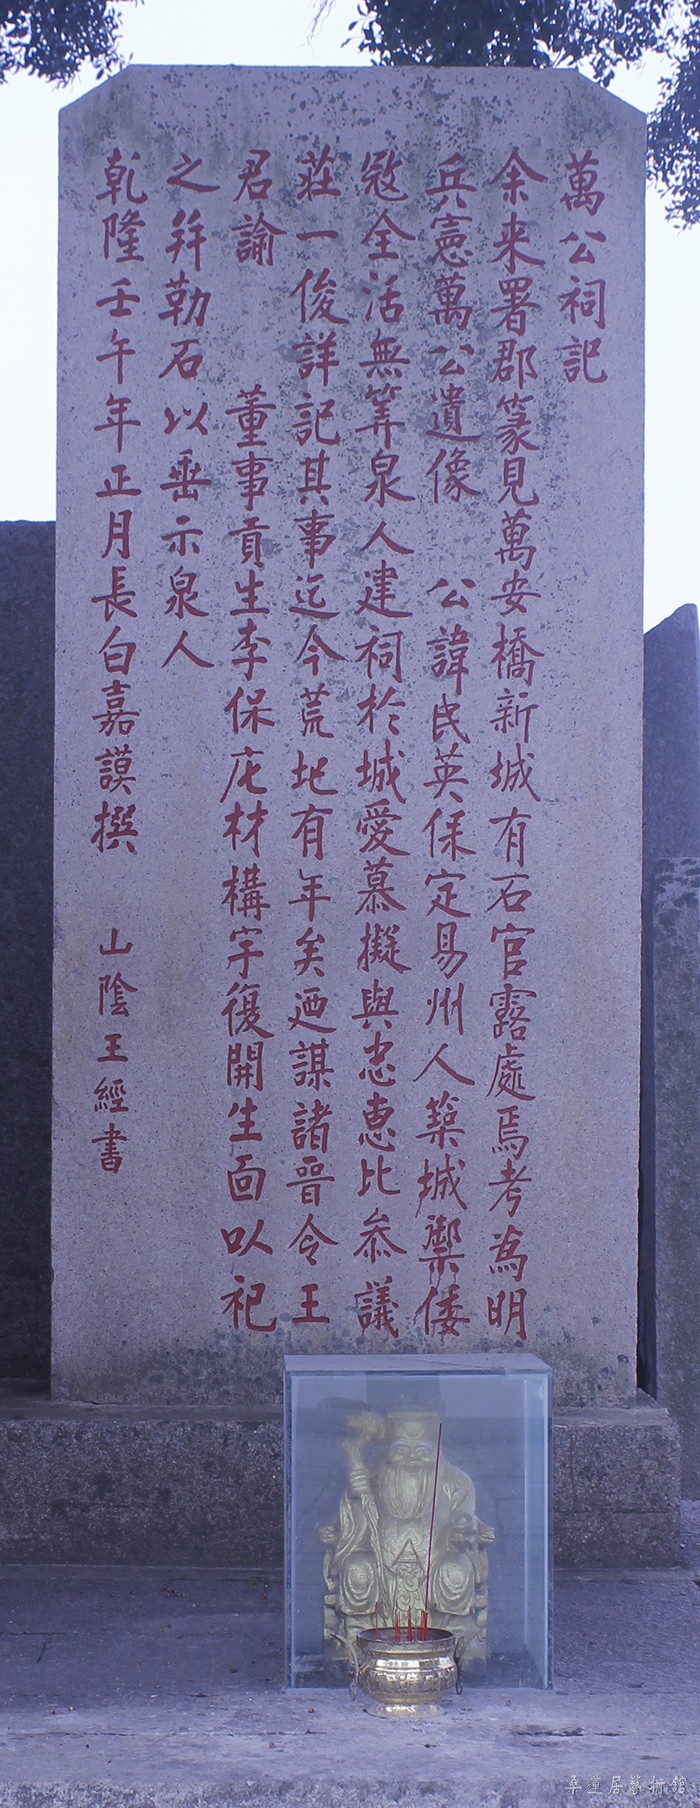 萬公祠記
余来署郡篆見萬安橋新城有石官露處焉考為明
兵憲萬公遺像 公諱民英保定易州人築城禦倭
冦全活無筭泉人建祠於城愛慕擬與忠惠比叅議
莊一俊詳記其事迄今荒圮有年矣迺謀諸晉令王
君諭 董事貢生李保庀材構宇復開生面以祀
之幷勒石以垂示泉人
乾隆壬午年正月長白嘉謨撰 山陰王經書
桑蓮居藝術館